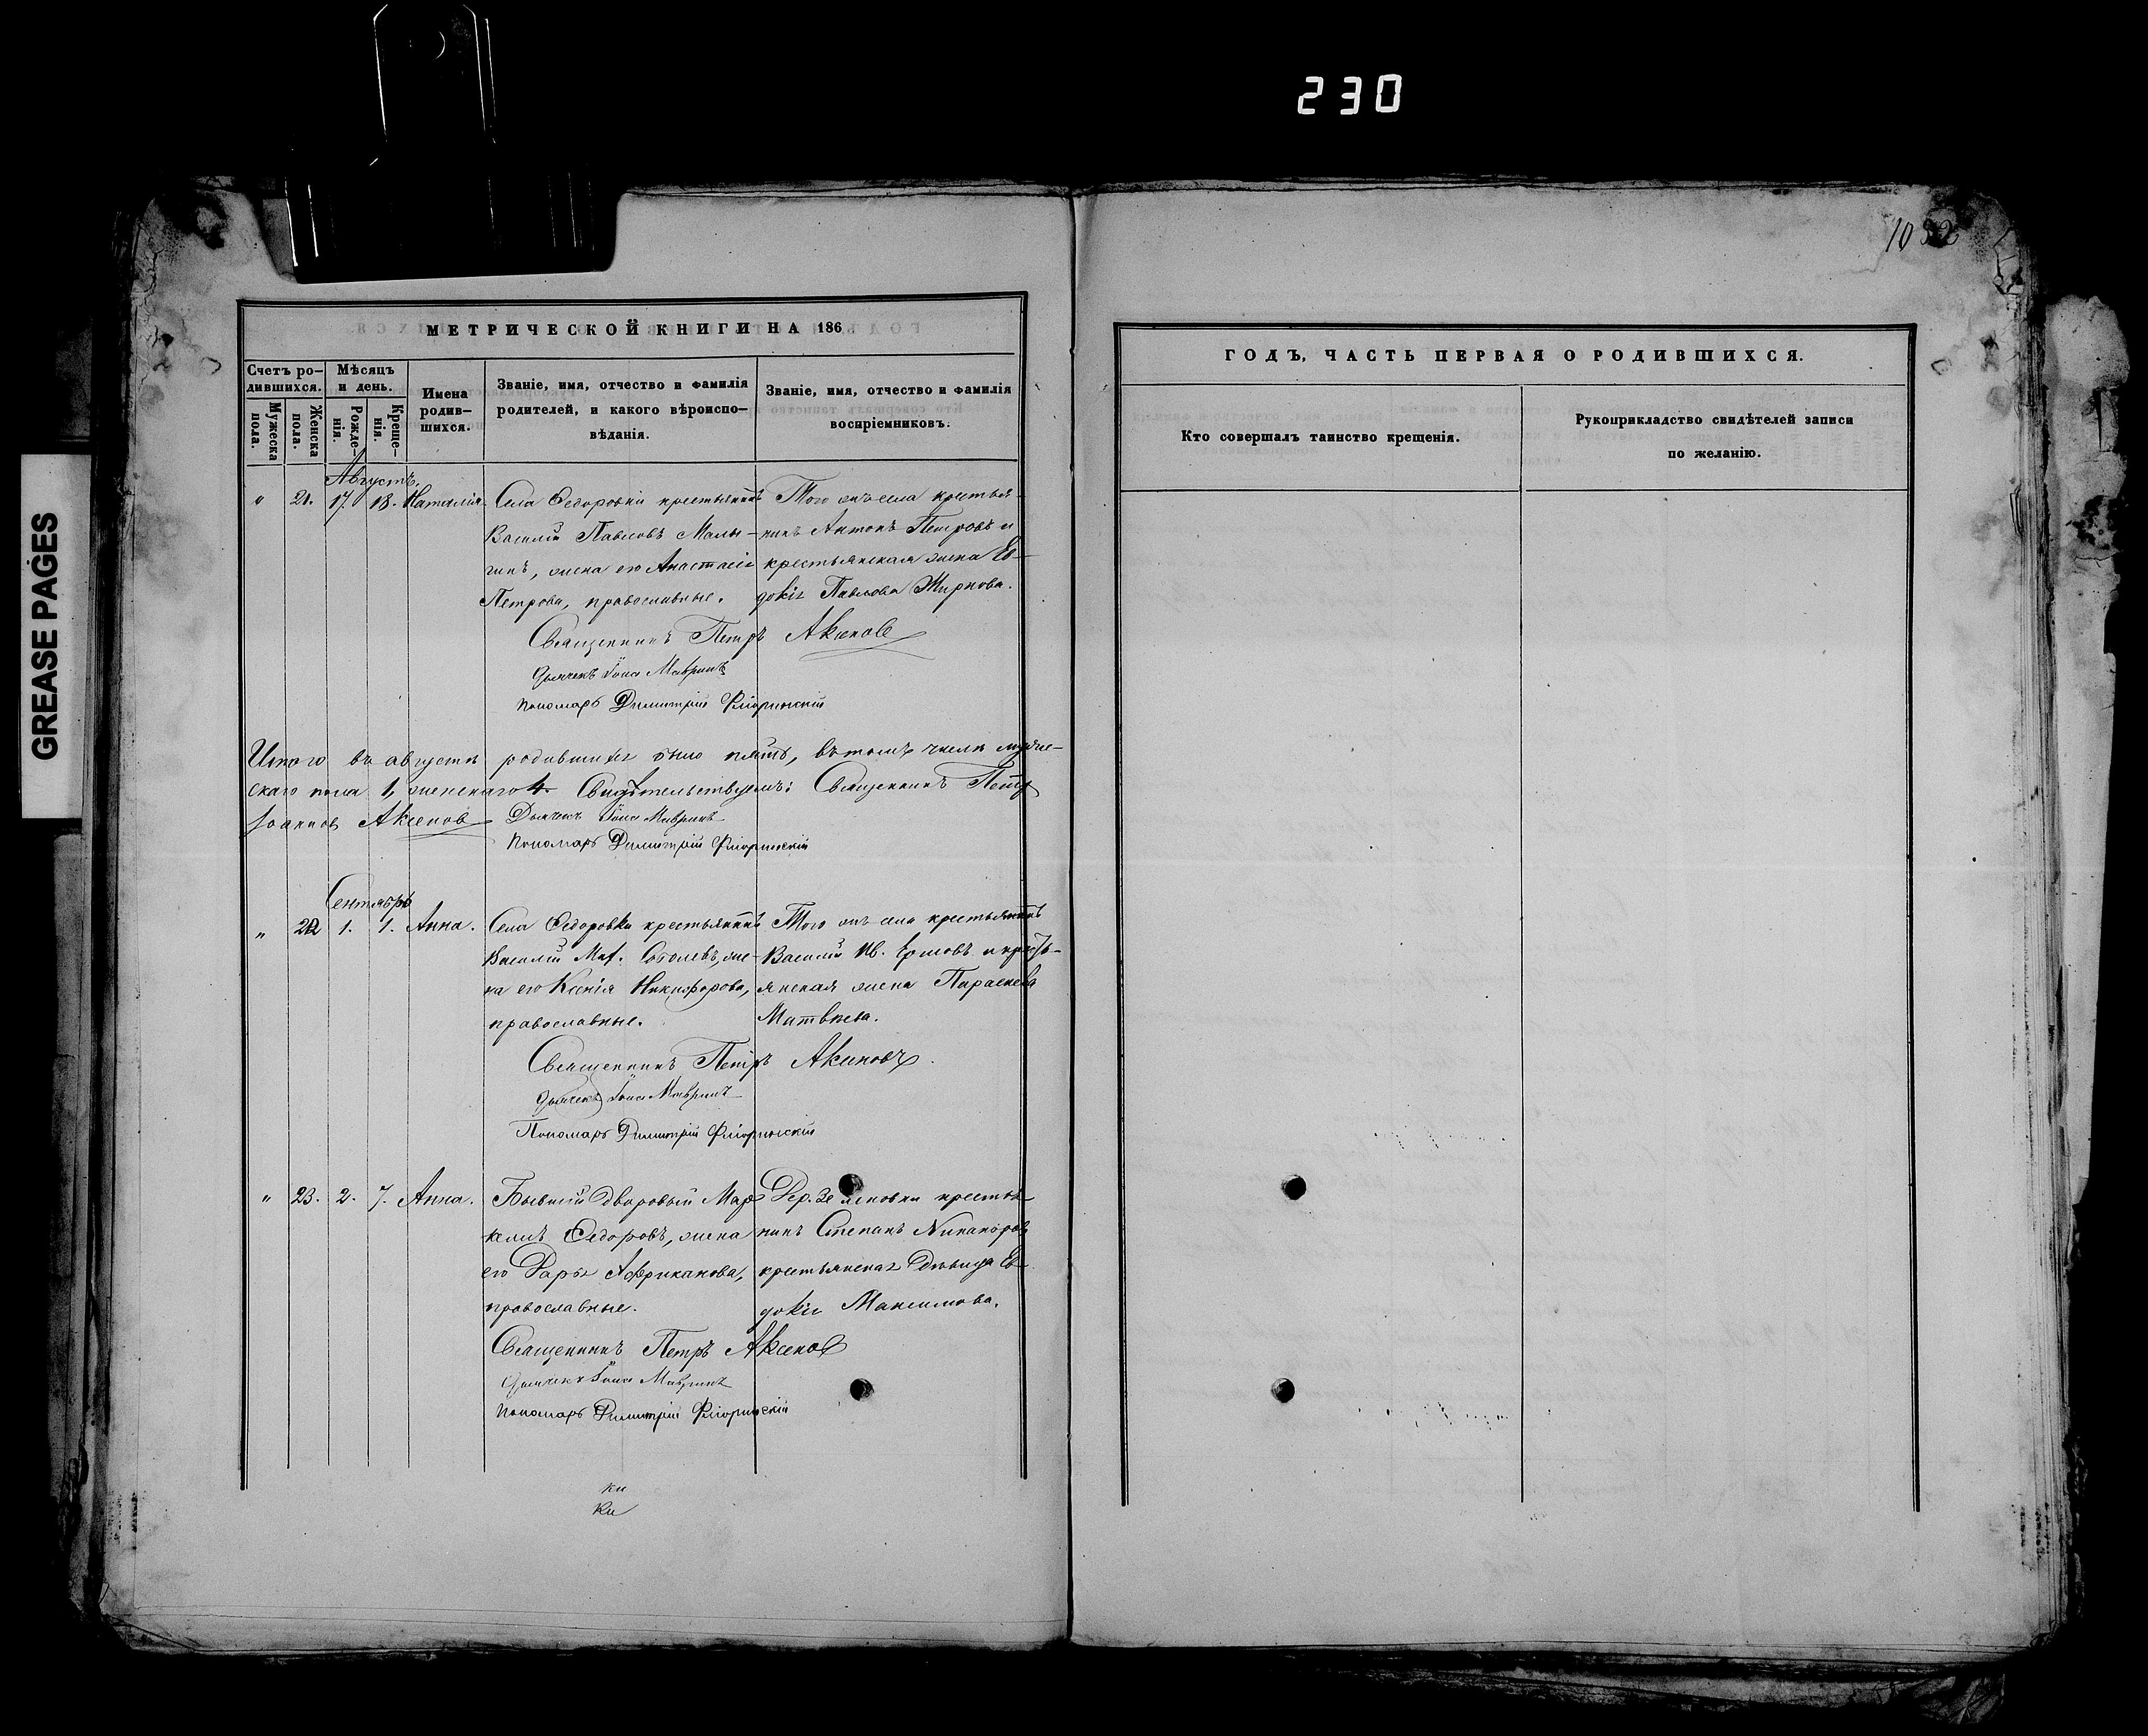 230
1052
GREASE PAGES
МЕТРИЧЕСКОЙ КНИГИ НА 186
Счетъ ро-
дившихся.
Мужеска
пола.
Женска
пола.
Мѣсяцъ
и день.
Рожде-
нія.
Креще-
нія.
Имена
родив-
шихся.
Званіе, имя, отчество и фамилія
родителей, и какого вѣроиспо-
вѣданія.
Званіе, имя, отчество и фамилія
воспріемниковъ.
Августъ.
" 21. 17. 18. Наталія.
Села Ѳедоровки крестьянинъ
Василій Павловъ Малы-
гинъ, жена его Анастасія
Петрова, православные.
Того жъ села крестья-
нинъ Антонъ Петровъ и
крестьянская жена Ев-
докія Павлова Жиркова.
Священникъ Петръ Аксенов
Дьячекъ Іона Мавринъ
Пономарь Димитрій Флоринскій
Итого въ августѣ родившихся было пять, въ томъ числѣ муже-
скаго пола 1, женскаго 4. Свидѣтельствуемъ: Священникъ Петр
Іоаннов Аксенов
Дьячекъ Іона Мавринъ
Пономарь Димитрій Флоринскій
Сентябрь
" 22 1. 1. Анна.
Села Ѳедоровки крестьянинъ
Василій Мат. Соболевъ, же-
на его Ксенія Никифорова,
православные.
Того жъ села крестьянинъ
Василій Ив. Ершовъ и кресть-
янская жена Параскева
Матвѣева.
Священникъ Петръ Аксеновъ
Дьячекъ Іона Мавринъ
Пономарь Димитрій Флоринскій
" 23. 2. 7. Анна.
Бывшій дворовый Мар-
келъ Ѳедоровъ, жена
его Дарья Африканова,
православные.
Дер. крестья-
нинъ Степанъ Никаноровъ
крестьянская дѣвица Ев-
докія Максимова.
Священникъ Петръ Аксенов
Дьячекъ Іона Мавринъ
Пономарь Димитрій Флоринскій
ки
ки
ГОДЪ, ЧАСТЬ ПЕРВАЯ О РОДИВШИХСЯ.
Кто совершалъ таинство крещенія.
Рукоприкладство свидѣтелей записи
по желанію.